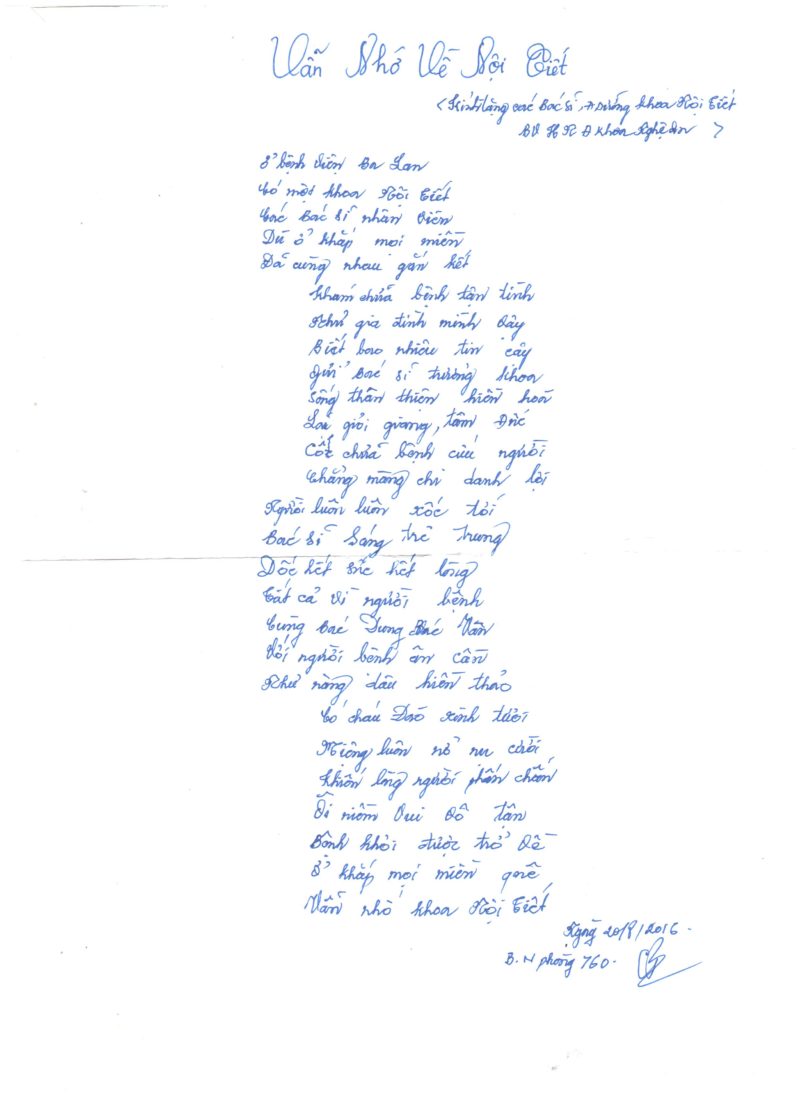 Vẫn Nhớ Về Nội Tiết
<Kính tặng các Bác sĩ, Đ Dưỡng khoa Nội Tiết
BV H N Đ khoa Nghệ An >
Ở bệnh viện Ba Lan
Có một khoa Nội Tiết
Các Bác sĩ nhân viên
Dù ở khắp mọi miền
Đã cùng nhau gắn kết
Khám chữa bệnh tận tình
Như gia đình mình vậy
Biết bao nhiêu tin cậy
Gửi Bác sĩ trưởng khoa
Sống thân thiện hiền hoà
Lại giỏi giang, tâm Đức
Cốt chữa bệnh cứu người
Chẳng màng chi danh lợi
Người luôn luôn xốc tới
Bác sĩ Sáng trẻ trung
Dốc hết sức hết lòng
Tất cả vì người bệnh
Cùng Bác Dung Bác Vân
Với người bệnh ân cần
Như nàng dâu hiền thảo
Có cháu Đào xinh tươi
Miệng luôn nở nụ cười
Khiến lòng người phấn chấn
Ôi niềm vui vô tận
Bệnh khỏi được trở về
Ở khắp mọi miền quê
Vẫn nhớ khoa Nội Tiết
Ngày 20/9/2016.
B.N phòng 760.